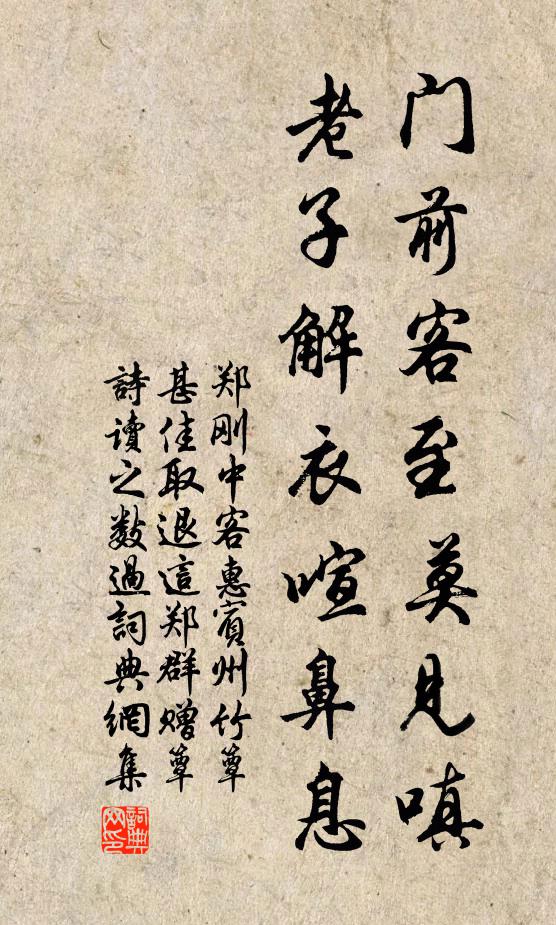 门前客至莫见嗔
老子解衣喧鼻息
郑刚中客惠宾州竹簟
甚佳取退這郑群赠簟
詩读之数過詞典網集
詞典网印